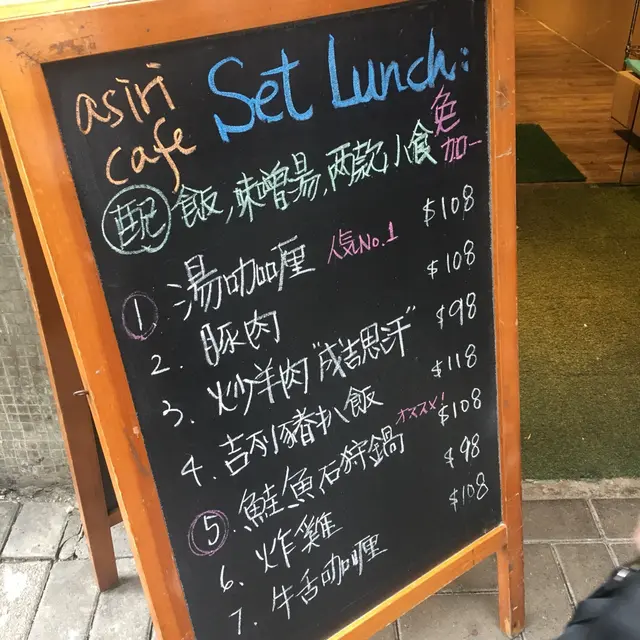 asiri
cafe
Set Lunch:
配 飯,味噌湯,両款小食 免加一
1 湯咖喱 人気No.1 $108
2. 豚肉 $108
3. 炒羊肉"成吉思汗" $98
4. 吉列豬扒飯 $118
5 鮭魚石狩鍋 オススメ! $108
6. 炸雞 $98
7. 牛舌咖喱 $108